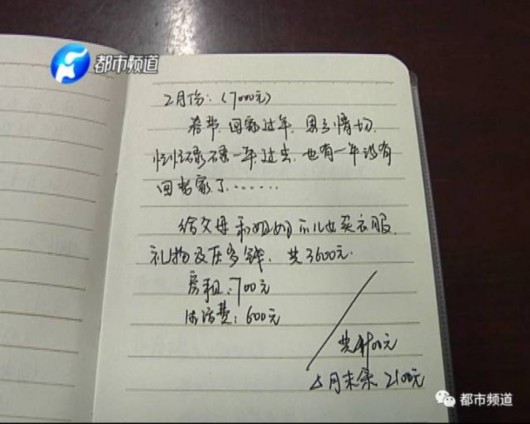 都市频道
2月份:(7000元)
春节,回家过年,思乡情切.
忙忙碌碌一年过去,也有一年没有
回老家了……
给父母和姐姐 买衣服、
礼物及压岁钱,共3600元.
房租:700元
生活费:600元
共4900元
2月末余 2100元
都市频道